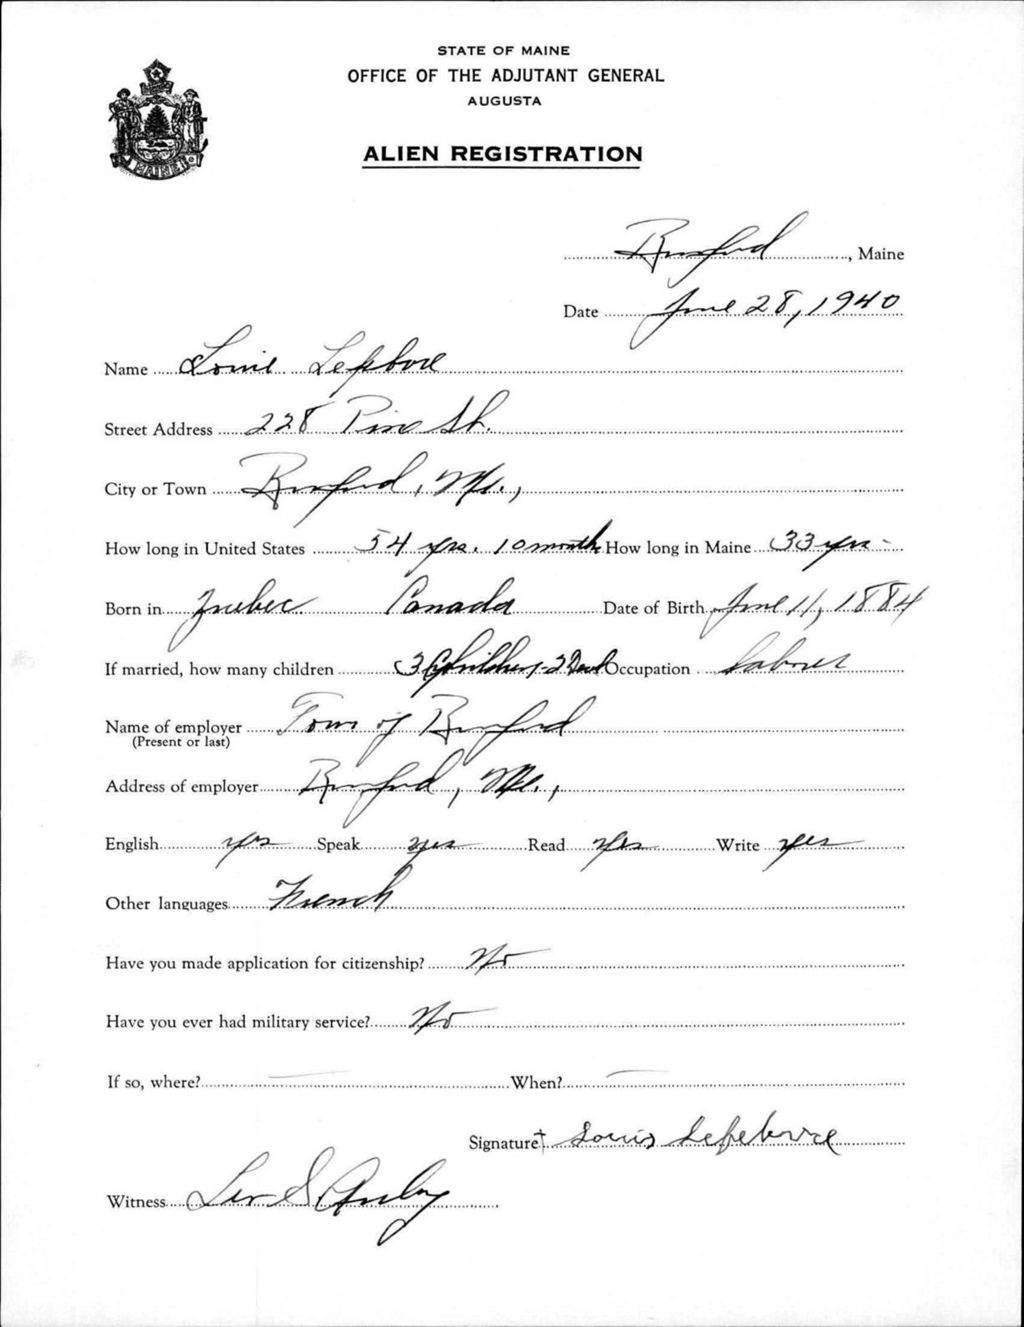 STATE OF MAINE
OFFICE OF THE ADJUTANT GENERAL
AUGUSTA
ALIEN REGISTRATION
MAINE
Rumford, Maine
Date June 28, 1940
Name Louis Lefebvre
Street Address 228 Pine St.
City or Town Rumford, Me.,
How long in United States 54 yrs. 10 months How long in Maine 33 yrs
Born in Quebec Canada Date of Birth June 11, 1884
If married, how many children 3 Children, 2 Dead Occupation Laborer
Name of employer Town of Rumford
(Present or last)
Address of employer Rumford, Me.,
English yes Speak yes Read yes Write yes
Other languages French
Have you made application for citizenship? No
Have you ever had military service? No
If so, where? — When? —
Signature Louis Lefebvre
Witness